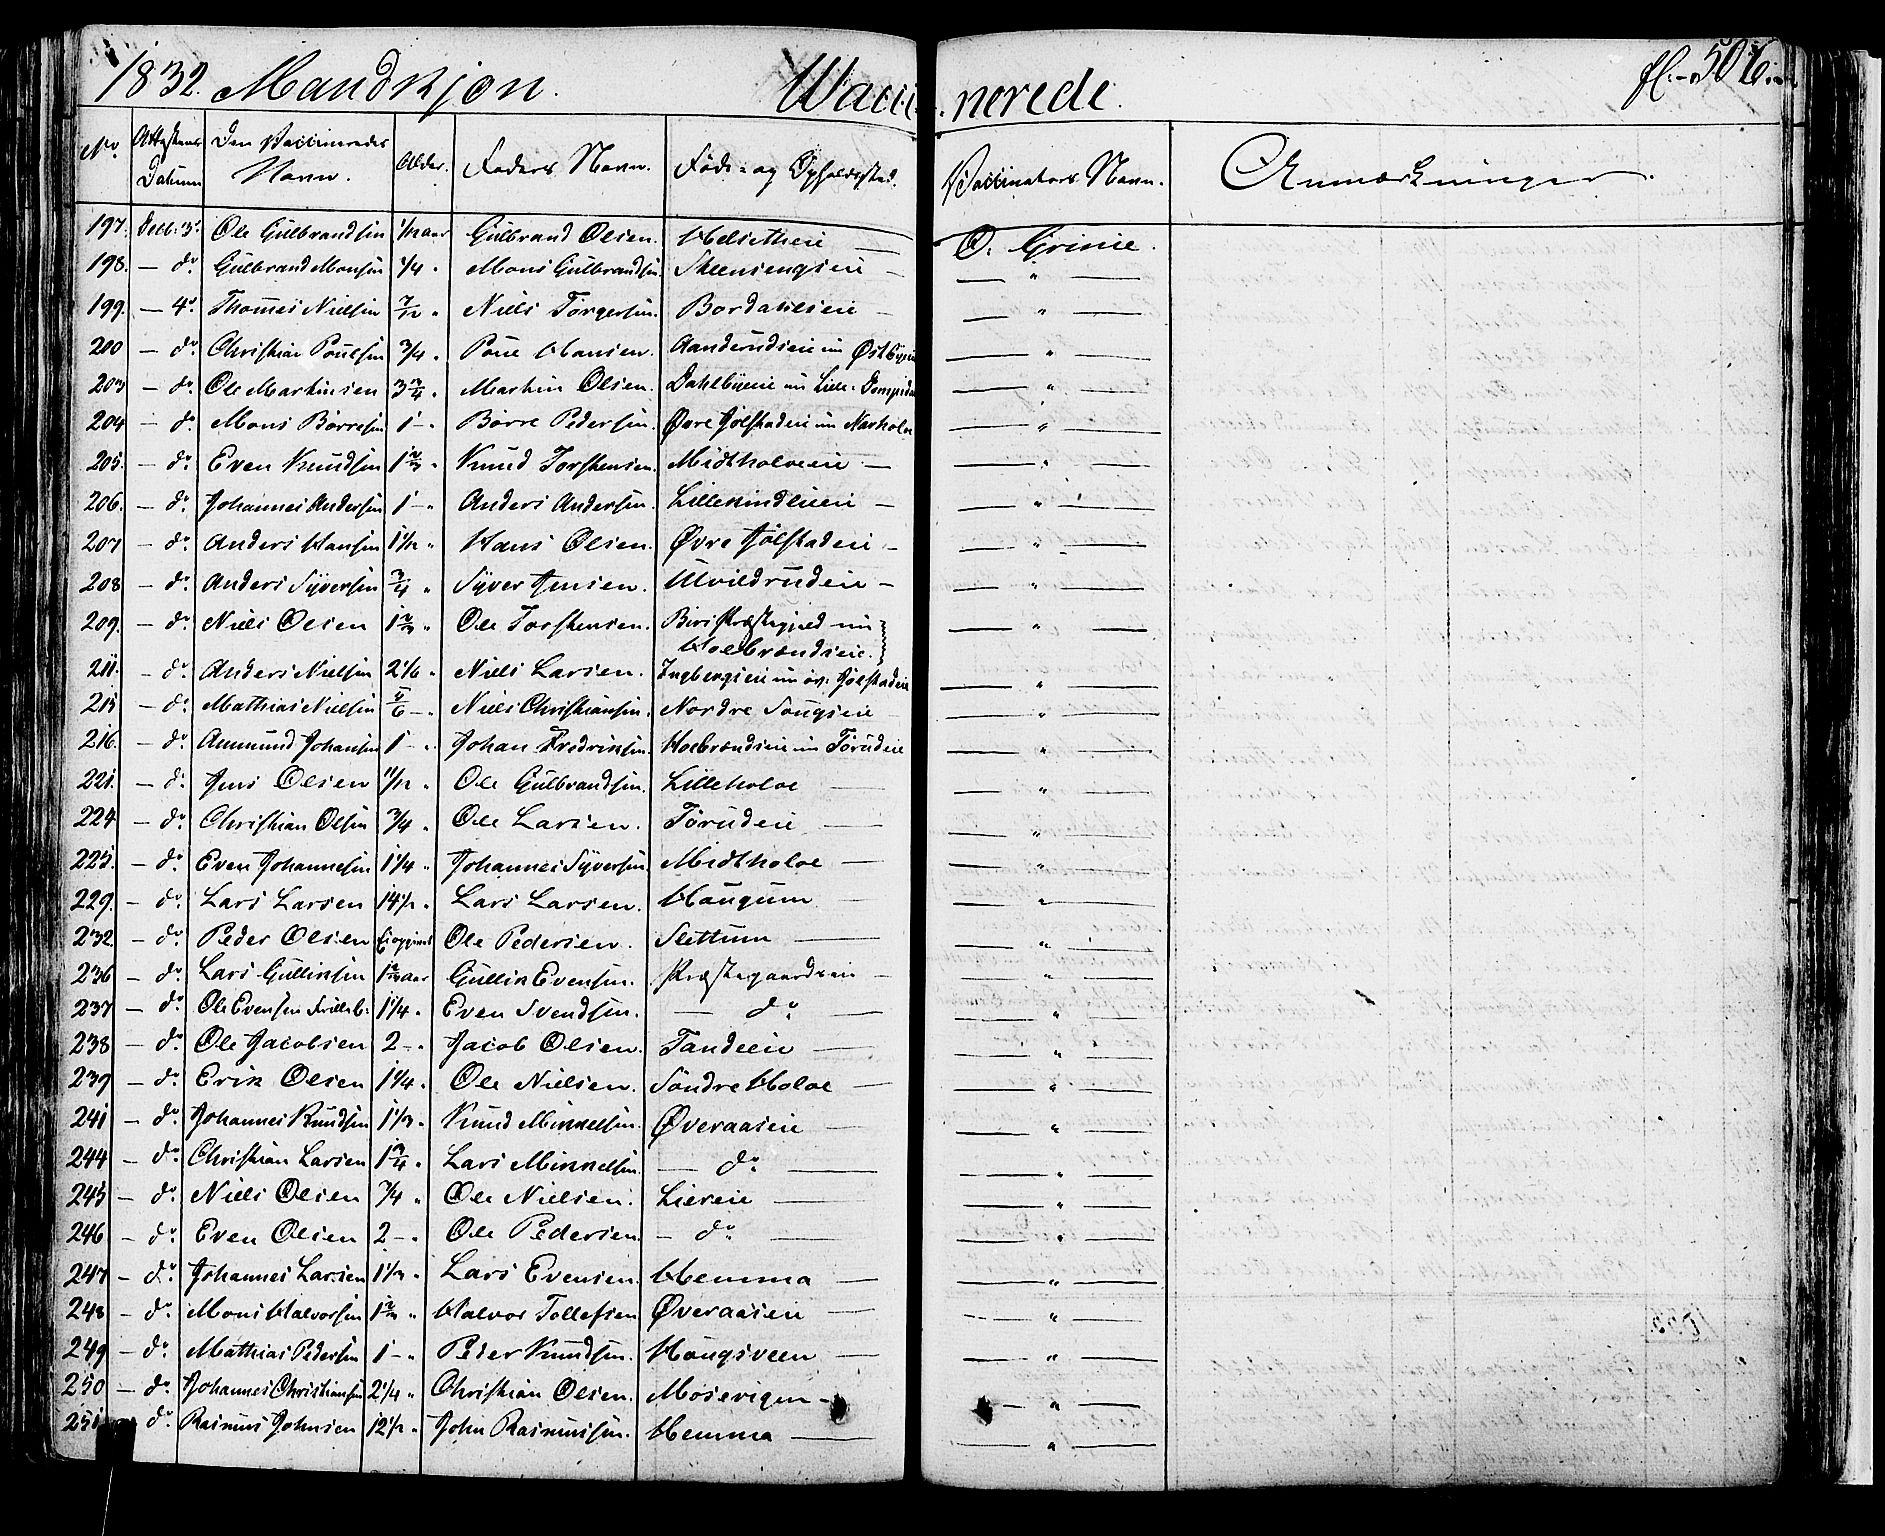 1832. Mandkjøn. Waccinerede. fl. 506.
No. Attestens Datum Den Vaccineredes Navn. Alder. Faders Navn. Føde- og Opholdssted. Vaccinators Navn. Anmærkninger.
197. Decb. 3. Ole Gulbrandsen 1/12 aar Gulbrand Olsen. Helsetheie — O. Grinie.
198. — do. Gulbrand Monsen 1/4 „ Mons Gulbrandsen. Skeensengseie — — „ —
199. — 4. Thomes Nielsen 7/12 „ Niels Torgersen. Bordahlseie — — „ —
200 — do. Christian Poulsen 3/4 „ Poul Hansen. Aanderudseie — „ —
203 — do. Ole Martinsen 3 3/4 „ Martin Olsen. — „ —
204 — do. Mons Børresen 1 — „ Børre Pedersen. Øvre Jølstadeie — „ —
205. — do. Even Knudsen 1 2/3 „ Knud Torstensen. Midtholoeeie — — „ —
206. — do. Johannes Andersen 1 — „ Anders Andersen. — — „ —
207 — do. Anders Hansen 1 1/12 „ Hans Olsen. Øvre Jølstadeie — — „ —
208 — do. Anders Syversen 3/4 „ Syver Jensen. Hvildrudeie — — „ —
209. — do. Niels Olsen 1 2/3 „ Ole Torstensen. Biri Præstegjeld nu — „ —
Holbrændseie.
211. — do. Anders Nielsen 2 1/6 „ Niels Larsen. Ingbergseie nu øv. Jølstadeie — „ —
215 — do. Mathias Nielsen 5/6 — „ Niels Christiansen. Nordre Sougseie — — „ —
216. — do. Ammund Johansen 1 — „ Johan Fredriksen. Holbrændseie nu Torudeie — „ —
221. — do. Jens Olsen 11/12 „ Ole Gulbrandsen. Lilleholoe — — „ —
224 — do. Christian Olsen 3/4 „ Ole Larsen. Torudeie — — „ —
225. — do. Even Johannesen 1 1/4 „ Johannes Syversen. Midtholoe — — „ —
229. — do. Lars Larsen 14 1/2 „ Lars Larsen. Hougum — — „ —
232. — do. Peder Olsen Ei opgivet Ole Pedersen. Slettum — — „ —
236 — do. Lars Gulliksen 1 2/3 aar Gullik Evensen. Præstegaardseie — — „ —
237 — do. Ole Evensen 1 1/4 „ Even Svendsen. — do. — — „ —
238 — do. Ole Jacobsen 2 — „ Jacob Olsen. Tandeeie — — „ —
239 — do. Erik Olsen 1 1/4 „ Ole Nielsen. Søndre Holoe — — „ —
241 — do. Johannes Knudsen 1 1/3 „ Knud Mikkelsen. Øveraaseie — — „ —
244 — do. Christian Larsen 1 3/4 „ Lars Mikkelsen. — do. — — „ —
245 — do. Niels Olsen 3/4 „ Ole Nielsen. Liereie — — „ —
246 — do. Even Olsen 2 — „ Ole Pedersen. — do. — — „ —
247 — do. Johannes Larsen 1 1/3 „ Lars Evensen. Hemma — — „ —
248 — do. Mons Halvorsen 1 2/3 „ Halvor Tollefsen Øveraaseie — — „ —
249 — do. Mathias Pedersen 1 — „ Peder Knudsen. Hougsveen — — „ —
250 — do. Johannes Christiansen 2 1/4 „ Christian Olsen. Mosevigen — — „ —
251 do. Rasmus Johnsen 12 1/2 „ John Rasmussen. Hemma — — „ —